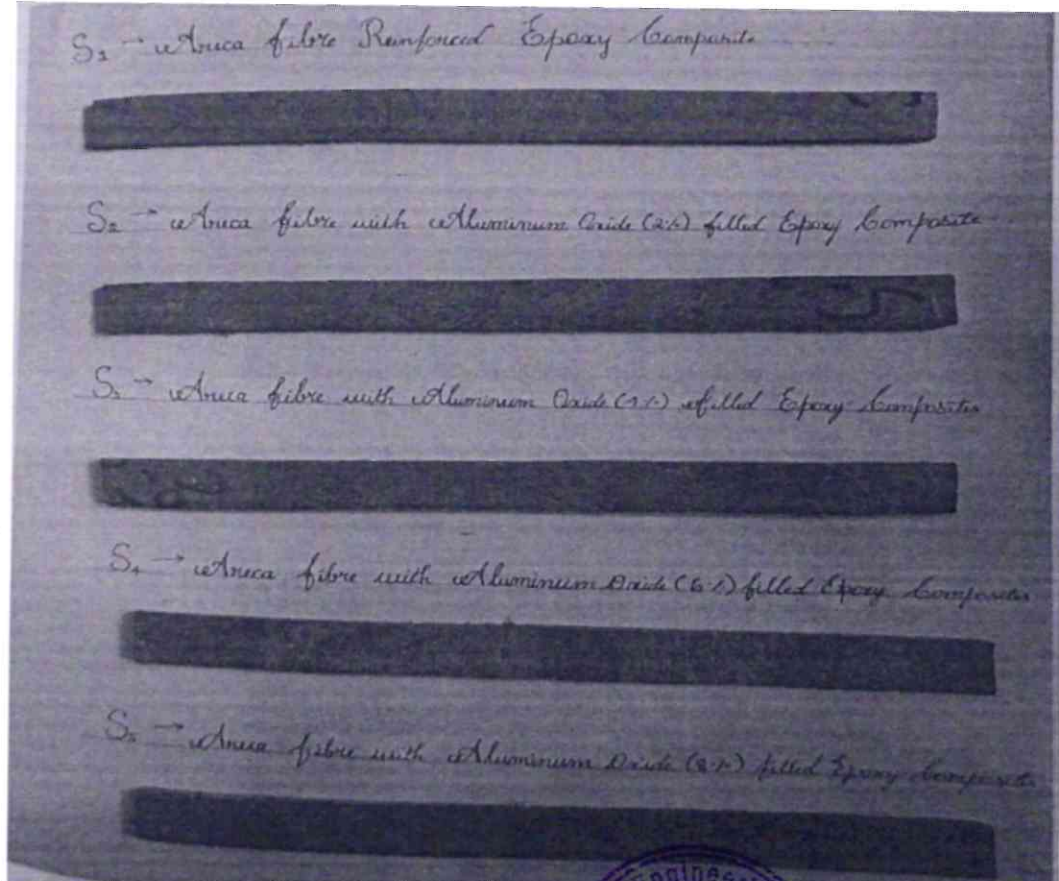 S₁ → Areca fibre Reinforced Epoxy Composite
S₂ → Areca fibre with Aluminum Oxide (2%) filled Epoxy Composite
S₃ → Areca fibre with Aluminum Oxide filled Epoxy Composites
S₄ → Areca fibre with Aluminum Oxide (6%) filled Epoxy Composites
S₅ → Areca fibre with Aluminum Oxide (8%) filled Epoxy Composite